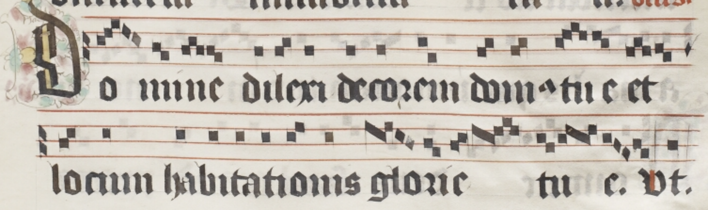 Domine dilexi decorem domus tu e et
locum habitationis glorie tu e. Vt.